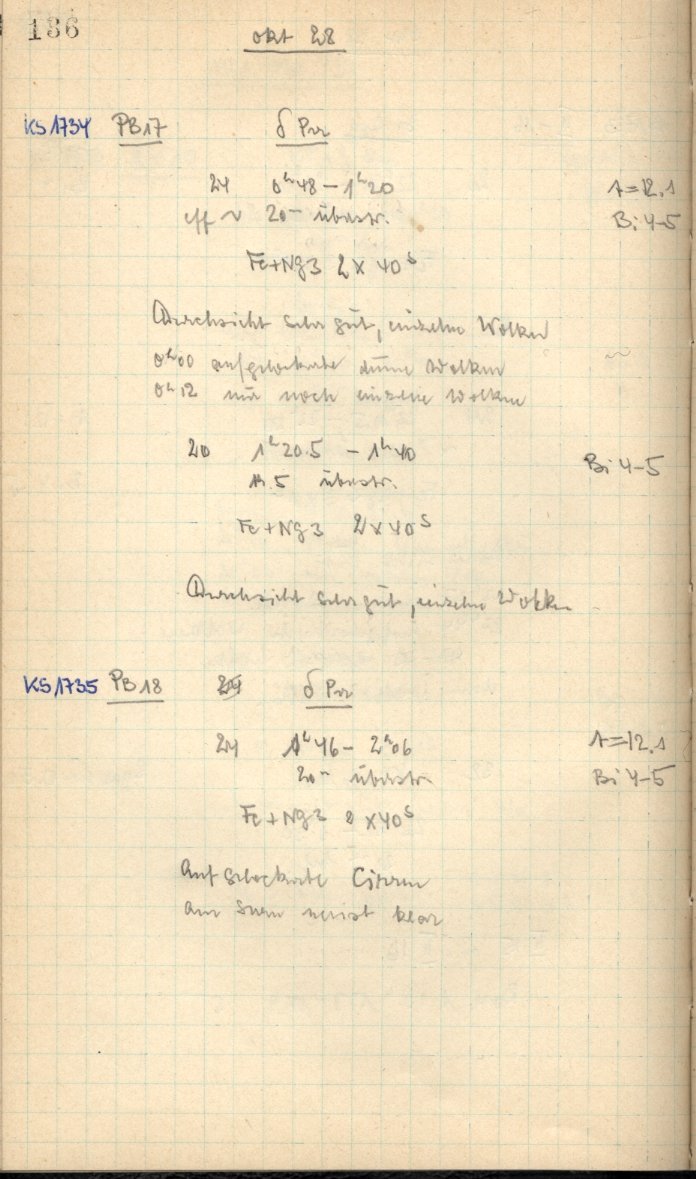 136
Okt 28
KS 1734 PB 17 δ Per
24 0ʰ48 – 1ʰ20 A = 12.1
eff ~ 20ᵐ überstr. Bi 4-5
Fe+Ng3 2 x 40ˢ
Durchsicht sehr gut, einzelne Wolken
0ʰ00 aufgelockerte dünne Wolken
0ʰ12 nur noch einzelne Wolken
20 1ʰ20.5 – 1ʰ40 Bi 4-5
5 überstr.
Fe+Ng3 2 x 40ˢ
Durchsicht sehr gut, einzelne Wolken
KS 1735 PB 18 δ Per
24 1ʰ46 – 2ʰ06 A = 12.1
20ᵐ überstr. Bi 4-5
Fe+Ng3 2 x 40ˢ
Aufgelockerte Cirren
am Stern meist klar